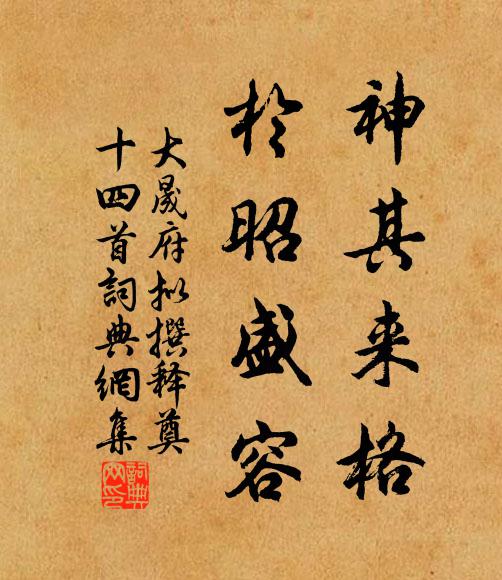 神其来格
於昭盛容
大晟府拟撰释奠
十四首詞典網集
詞典网印